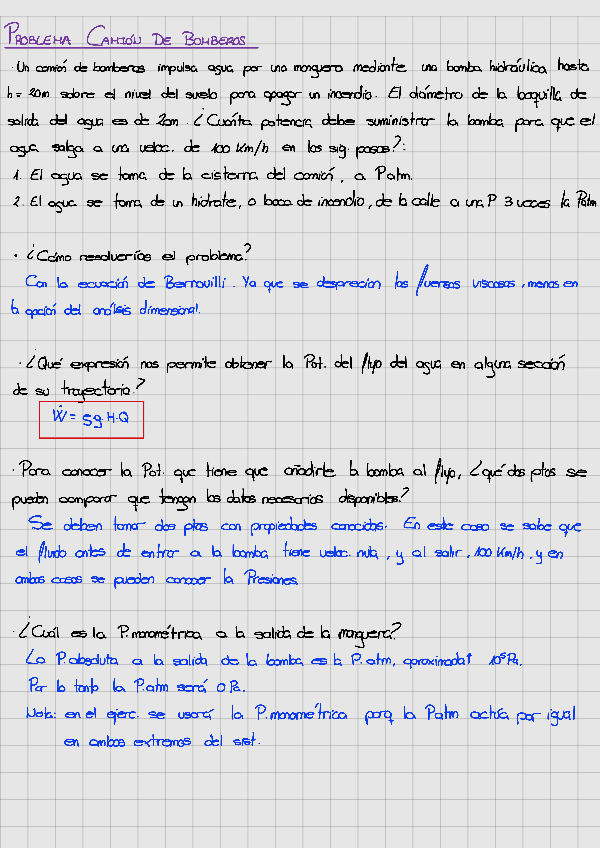 PROBLEMA CAMIÓN DE BOMBEROS
· Un camión de bomberos impulsa agua por una manguera mediante una bomba hidráulica hasta
h = 20m sobre el nivel del suelo para apagar un incendio. El diámetro de la boquilla de
salida del agua es de 2cm. ¿Cuánta potencia debe suministrar la bomba para que el
agua salga a una veloc. de 100 Km/h en los sig. pasos?:
1. El agua se toma de la cisterna del camión, a Patm.
2. El agua se toma de un hidrate, o boca de incendio, de la calle a una P 3 veces la Patm
· ¿Cómo resolverías el problema?
Con la ecuación de Bernouilli. Ya que se desprecian las fuerzas viscosas, menos en
la opción del análisis dimensional.
· ¿Qué expresión nos permite obtener la Pot. del flujo del agua en alguna sección
de su trayectoria?
Ẇ = ρg·H·Q
· Para conocer la Pot. que tiene que añadirle la bomba al flujo, ¿qué dos ptos se
pueden comparar que tengan los datos necesarios disponibles?
Se deben tomar dos ptos con propiedades conocidas. En este caso se sabe que
el fluido antes de entrar a la bomba tiene veloc. nula, y al salir, 100 Km/h, y en
ambos casos se pueden conocer la Presiones.
· ¿Cuál es la P.manométrica a la salida de la manguera?
La P.absoluta a la salida de la bomba es la P.atm, aproximada↑ 10⁵Pa.
Por lo tanto la P.atm será 0 Pa.
Nota: en el ejerc. se usará la P.manométrica porq la Patm actúa por igual
en ambos extremos del sist.